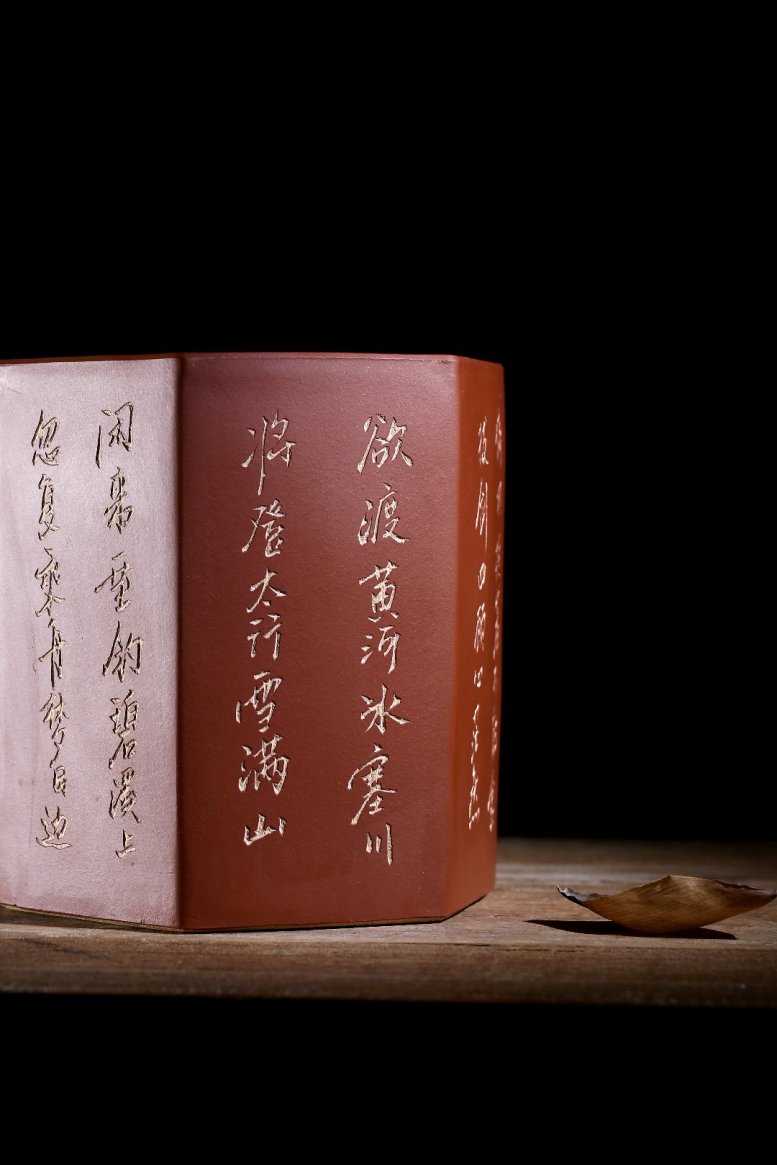 拔剑四顾心茫然
欲渡黄河冰塞川
将登太行雪满山
闲来垂钓碧溪上
忽复乘舟梦日边